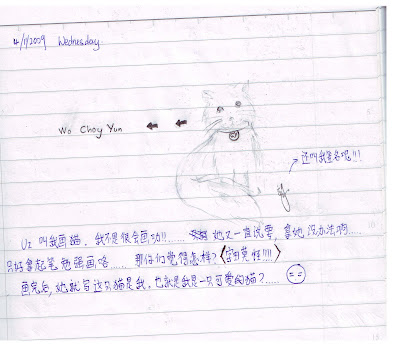 4/11/2009 Wednesday
Wo Choy Yun
还叫我签名呢!!!
Uz 叫我画猫，我不是很会画叻!!...... 她又一直说要，拿她没办法啊......
只好拿起笔勉强画咯...... 那你们觉得怎样?
画完后，她就写这只猫是我，也就是我是一只可爱的猫?......